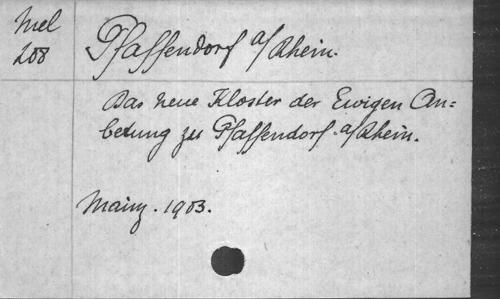 Mel
208
Pfaffendorf a/Rhein.
Das neue Kloster der Ewigen An=
betung zu Pfaffendorf a/Rhein.
Mainz. 1903.